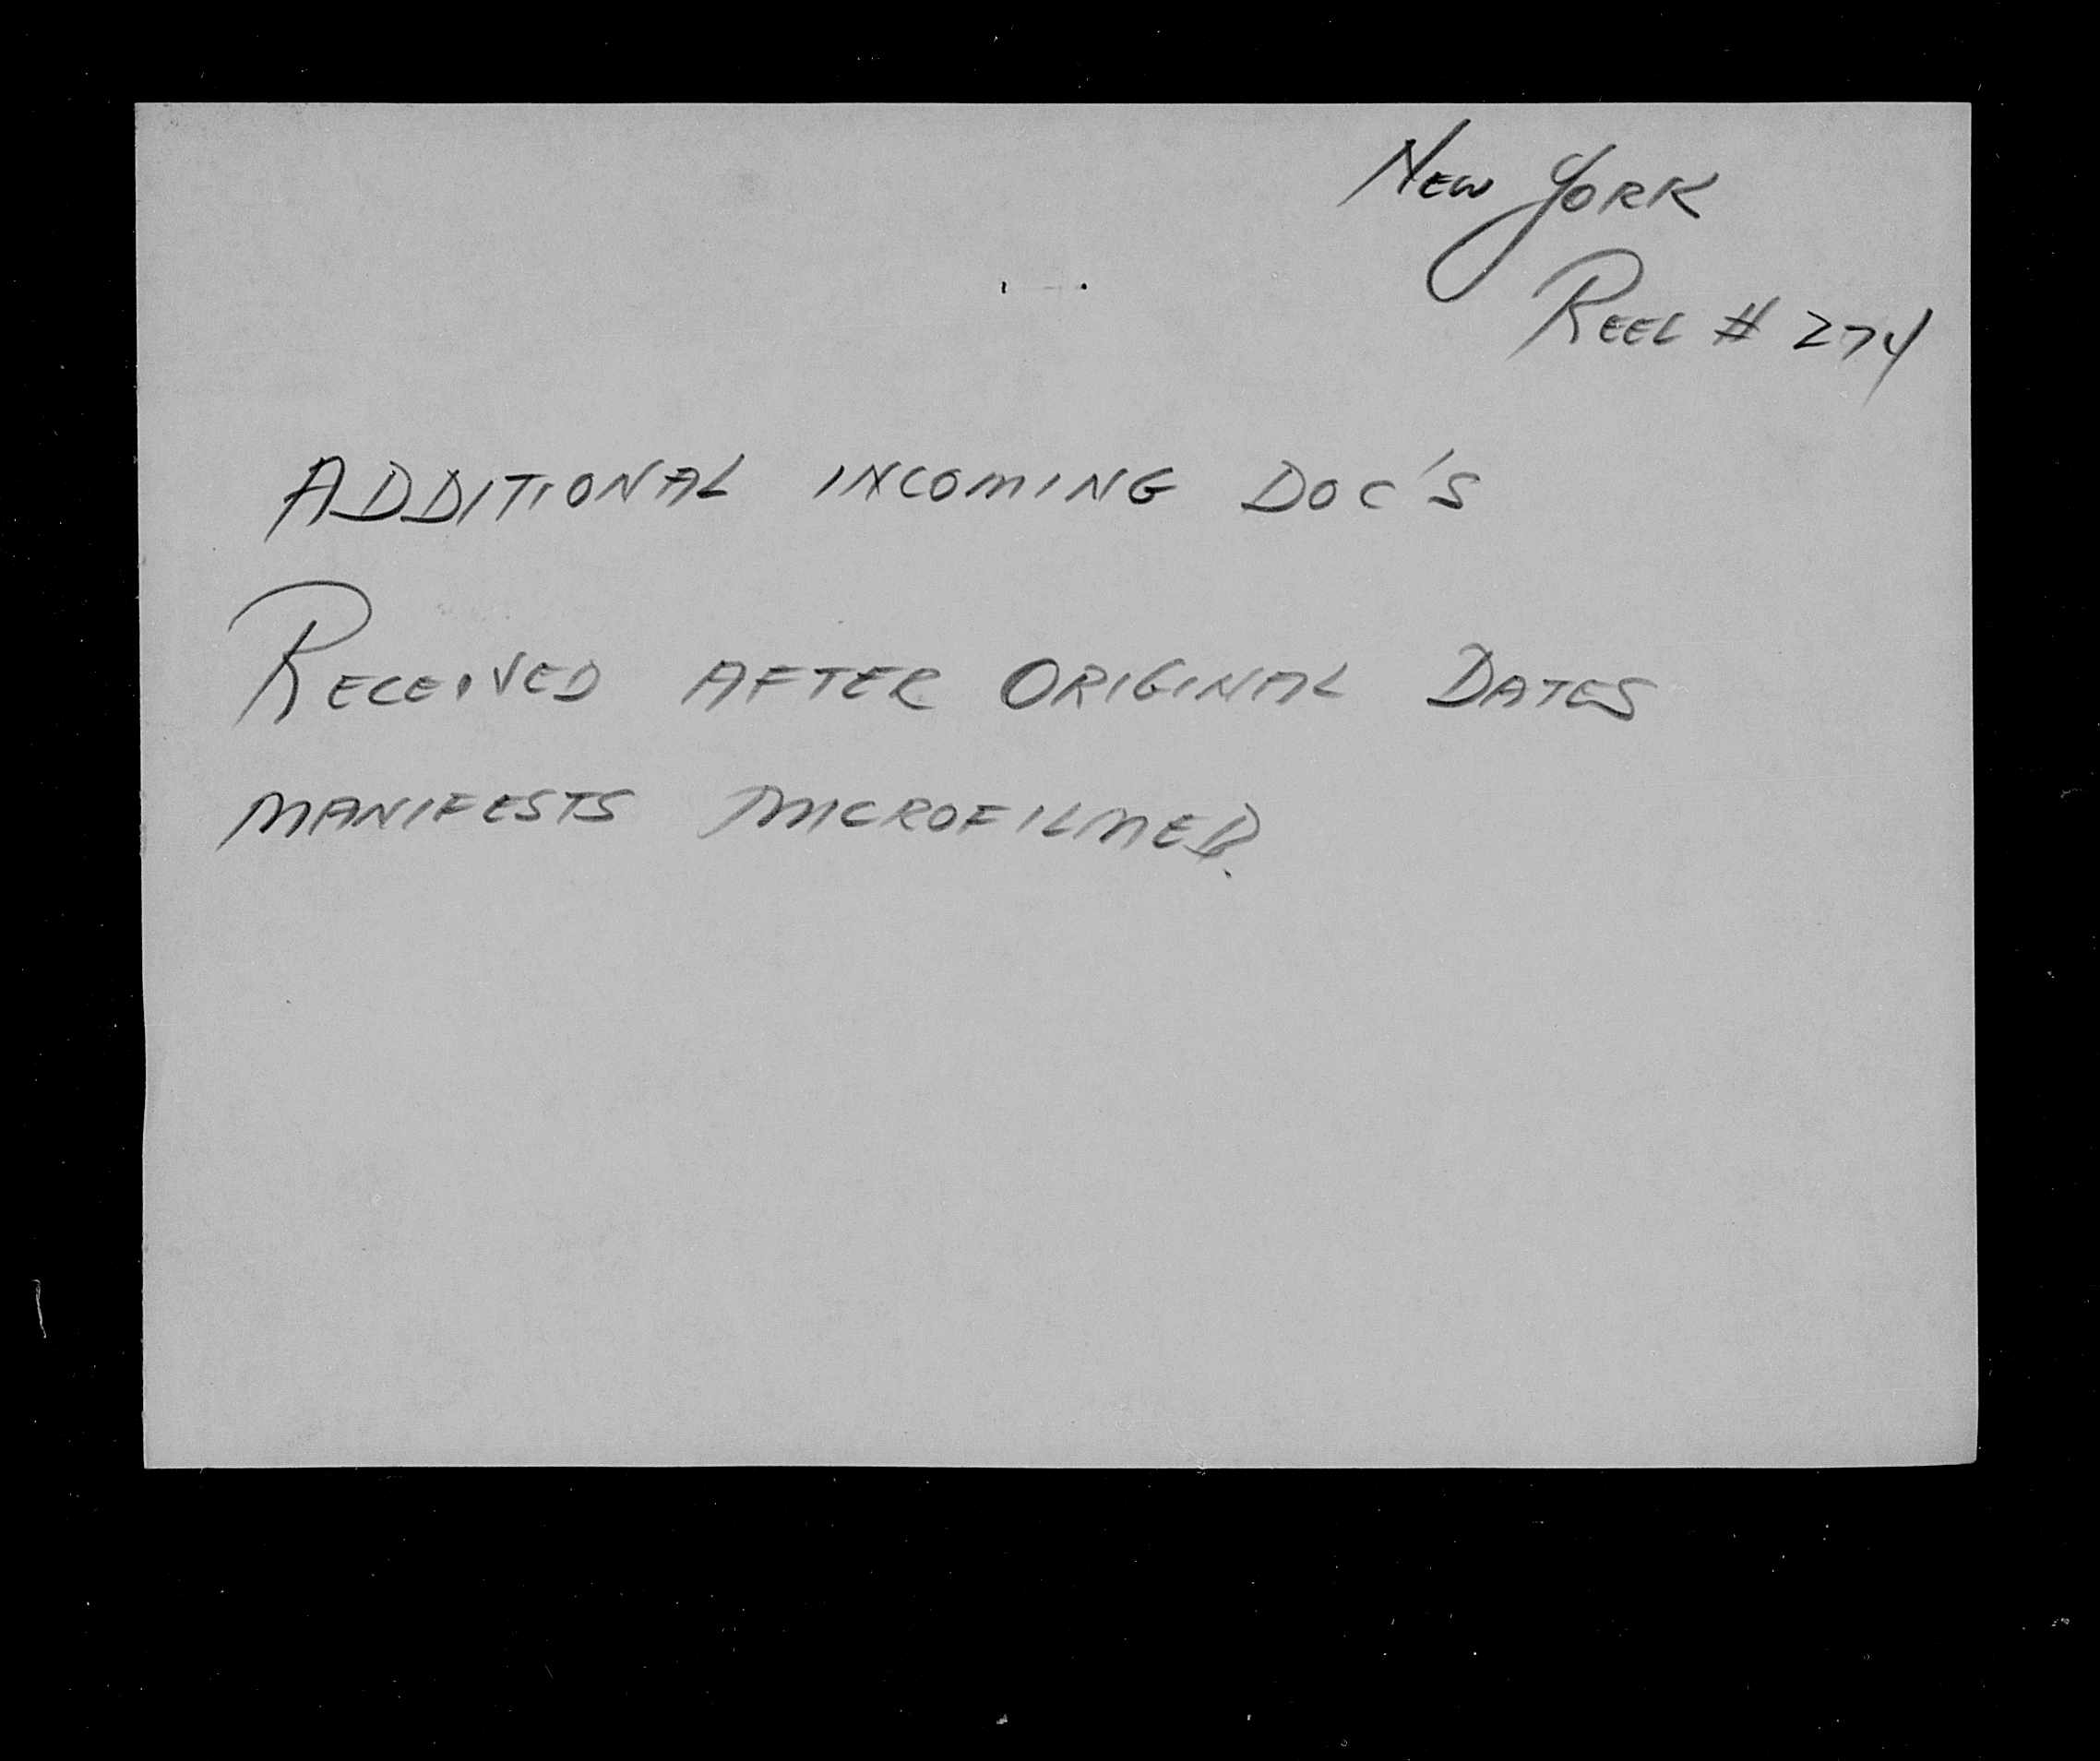 New York
Reel # 274
ADDITIONAL INCOMING DOC'S
RECEIVED AFTER ORIGINAL DATES
MANIFESTS MICROFILMED.